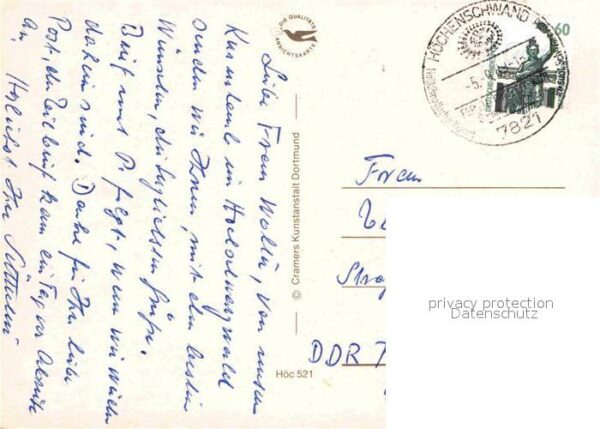 Liebe Frau Wella, von unserem
Kurzurlaub im Hochschwarzwald
senden wir Ihnen, mit den besten
Wünschen, die herzlichsten Grüße.
Brief mit P. folgt, wenn wir wieder
daheim sind. Danke für Ihre liebe
Post, der Eilbrief kam ein Tag vor Abreise
an. Herzlichst Ihre
DIE QUALITÄTS
ANSICHTSKARTE
© Cramers Kunstanstalt Dortmund
Höc 521
HÖCHENSCHWAND
-5.
7821
60
Frau
Str
DDR 7
privacy protection
Datenschutz